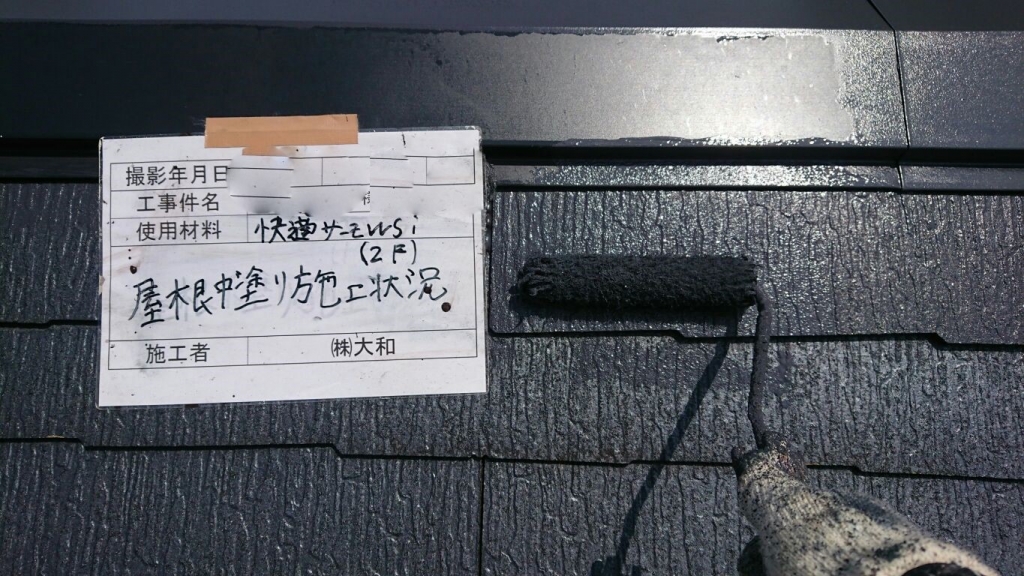 撮影年月日
工事件名
使用材料 快適サーモWSi
(2F)
屋根中塗り施工状況
施工者 ㈱大和